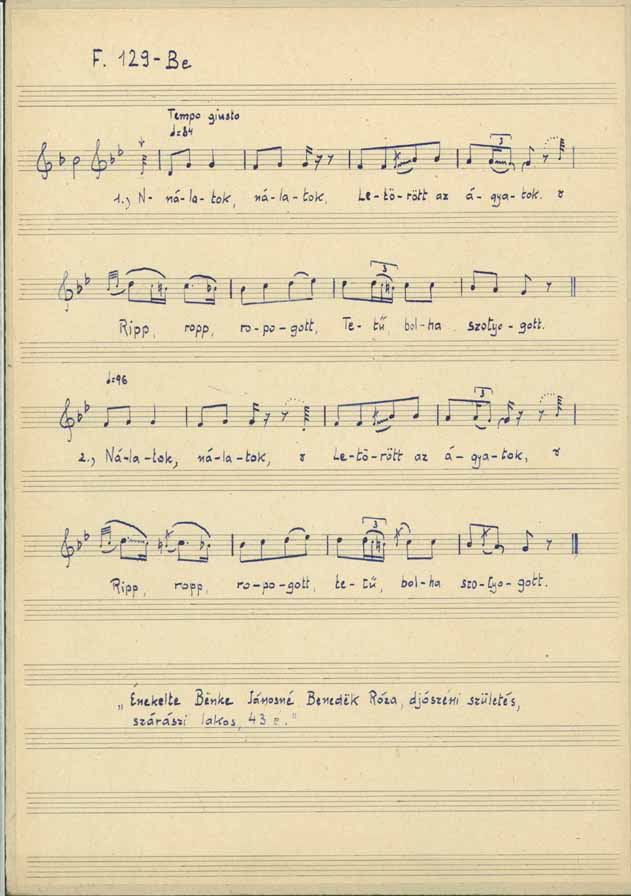 F. 129-Be
Tempo giusto
♩=84
1., N- ná-la-tok, ná-la-tok, Le-tö-rött az á-gya-tok.
3
3
Ripp, ropp, ro-po-gott, Te-tű, bol-ha szotyo-gott.
♩=96
3
2., Ná-la-tok, ná-la-tok, Le-tö-rött az á-gya-tok,
3
Ripp, ropp, ro-po-gott, te-tű, bol-ha szo-tyo-gott.
„Énekelte Bënke Jánosné Benedëk Róza, djószéni születés,
szárászi lakos, 43 é."